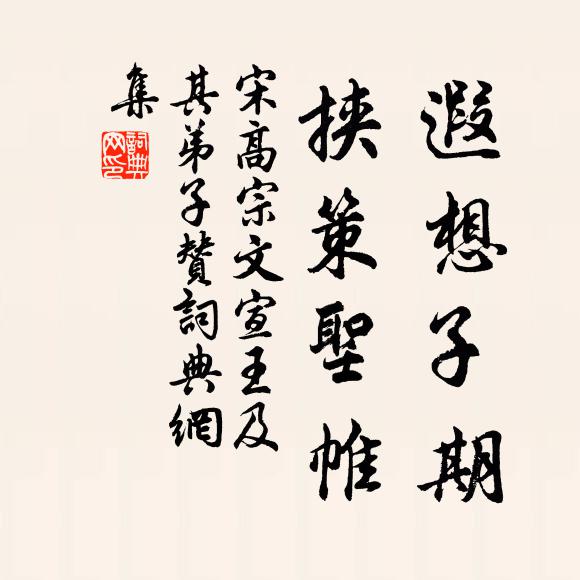 遐想子期
挾策聖帷
宋高宗文宣王及
其弟子贊詞典網
集
詞典網印